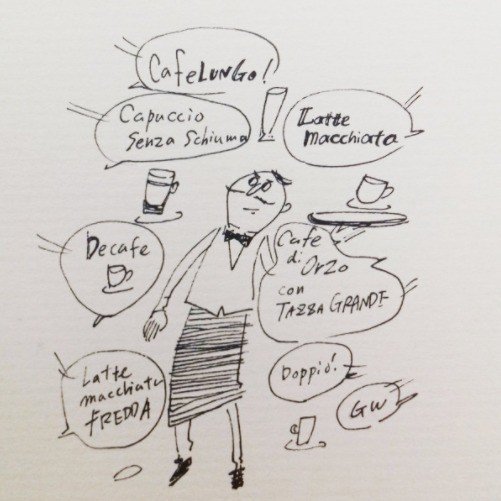 CafeLUNGO!
Capuccio
Senza Schiuma
Latte
macchiata
Decafe
Cafe
di Orzo
con
TAZZA GRANDE
Latte
macchiata
FREDDA
Doppio!
GW